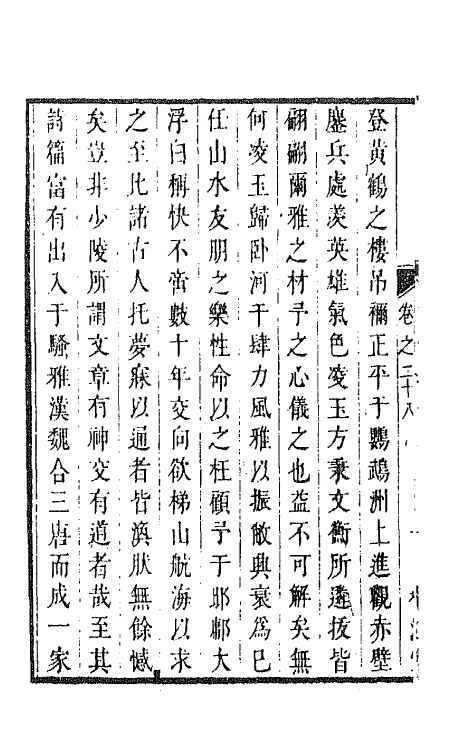 卷之二十八
登黃鶴之樓吊禰正平于鸚鵡洲上進觀赤壁
鏖兵處羨英雄氣色凌玉方秉文衡所遴拔皆
翩翩爾雅之材予之心儀之也益不可解矣無
何凌玉歸卧河干肆力風雅以振敝興衰為已
任山水友朋之樂性命以之枉顧予于邯鄲大
浮白稱快不啻數十年交向欲梯山航海以求
之至比諸古人托夢寐以通者皆渙狀無餘憾
矣豈非少陵所謂文章有神交有道者哉至其
詩篇富有出入于騷雅漢魏合三唐而成一家